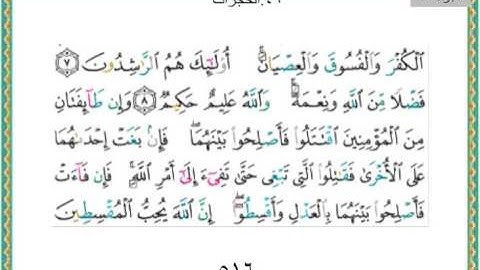 ٤٩.الحجرات
ٱلْكُفْرَ وَٱلْفُسُوقَ وَٱلْعِصْيَانَ ۚ أُو۟لَٰٓئِكَ هُمُ ٱلرَّٰشِدُونَ ٧
فَضْلًا مِّنَ ٱللَّهِ وَنِعْمَةً ۚ وَٱللَّهُ عَلِيمٌ حَكِيمٌ ٨ وَإِن طَآئِفَتَانِ
مِنَ ٱلْمُؤْمِنِينَ ٱقْتَتَلُوا۟ فَأَصْلِحُوا۟ بَيْنَهُمَا ۖ فَإِنۢ بَغَتْ إِحْدَىٰهُمَا
عَلَى ٱلْأُخْرَىٰ فَقَٰتِلُوا۟ ٱلَّتِى تَبْغِى حَتَّىٰ تَفِىٓءَ إِلَىٰٓ أَمْرِ ٱللَّهِ ۚ فَإِن فَآءَتْ
فَأَصْلِحُوا۟ بَيْنَهُمَا بِٱلْعَدْلِ وَأَقْسِطُوٓا۟ ۖ إِنَّ ٱللَّهَ يُحِبُّ ٱلْمُقْسِطِينَ
٥١٦